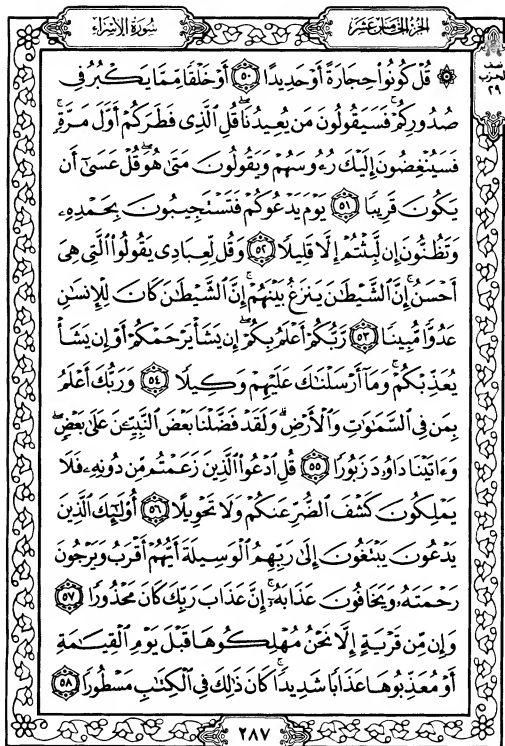 سُورَةُ الإِسْرَاءِ
الجُزْءُ الخَامِسَ عَشَرَ
نصف
الحزب
٢٩
۞ قُلۡ كُونُواْ حِجَارَةً أَوۡ حَدِيدًا ٥٠ أَوۡ خَلۡقٗا مِّمَّا يَكۡبُرُ فِي
صُدُورِكُمۡۚ فَسَيَقُولُونَ مَن يُعِيدُنَاۖ قُلِ ٱلَّذِي فَطَرَكُمۡ أَوَّلَ مَرَّةٖۚ
فَسَيُنۡغِضُونَ إِلَيۡكَ رُءُوسَهُمۡ وَيَقُولُونَ مَتَىٰ هُوَۖ قُلۡ عَسَىٰٓ أَن
يَكُونَ قَرِيبٗا ٥١ يَوۡمَ يَدۡعُوكُمۡ فَتَسۡتَجِيبُونَ بِحَمۡدِهِۦ
وَتَظُنُّونَ إِن لَّبِثۡتُمۡ إِلَّا قَلِيلٗا ٥٢ وَقُل لِّعِبَادِي يَقُولُواْ ٱلَّتِي هِيَ
أَحۡسَنُۚ إِنَّ ٱلشَّيۡطَٰنَ يَنزَغُ بَيۡنَهُمۡۚ إِنَّ ٱلشَّيۡطَٰنَ كَانَ لِلۡإِنسَٰنِ
عَدُوّٗا مُّبِينٗا ٥٣ رَّبُّكُمۡ أَعۡلَمُ بِكُمۡۖ إِن يَشَأۡ يَرۡحَمۡكُمۡ أَوۡ إِن يَشَأۡ
يُعَذِّبۡكُمۡۚ وَمَآ أَرۡسَلۡنَٰكَ عَلَيۡهِمۡ وَكِيلٗا ٥٤ وَرَبُّكَ أَعۡلَمُ
بِمَن فِي ٱلسَّمَٰوَٰتِ وَٱلۡأَرۡضِۗ وَلَقَدۡ فَضَّلۡنَا بَعۡضَ ٱلنَّبِيِّـۧنَ عَلَىٰ بَعۡضٖۖ
وَءَاتَيۡنَا دَاوُۥدَ زَبُورٗا ٥٥ قُلِ ٱدۡعُواْ ٱلَّذِينَ زَعَمۡتُم مِّن دُونِهِۦ فَلَا
يَمۡلِكُونَ كَشۡفَ ٱلضُّرِّ عَنكُمۡ وَلَا تَحۡوِيلًا ٥٦ أُوْلَٰٓئِكَ ٱلَّذِينَ
يَدۡعُونَ يَبۡتَغُونَ إِلَىٰ رَبِّهِمُ ٱلۡوَسِيلَةَ أَيُّهُمۡ أَقۡرَبُ وَيَرۡجُونَ
رَحۡمَتَهُۥ وَيَخَافُونَ عَذَابَهُۥٓۚ إِنَّ عَذَابَ رَبِّكَ كَانَ مَحۡذُورٗا ٥٧
وَإِن مِّن قَرۡيَةٍ إِلَّا نَحۡنُ مُهۡلِكُوهَا قَبۡلَ يَوۡمِ ٱلۡقِيَٰمَةِ
أَوۡ مُعَذِّبُوهَا عَذَابٗا شَدِيدٗاۚ كَانَ ذَٰلِكَ فِي ٱلۡكِتَٰبِ مَسۡطُورٗا ٥٨
٢٨٧